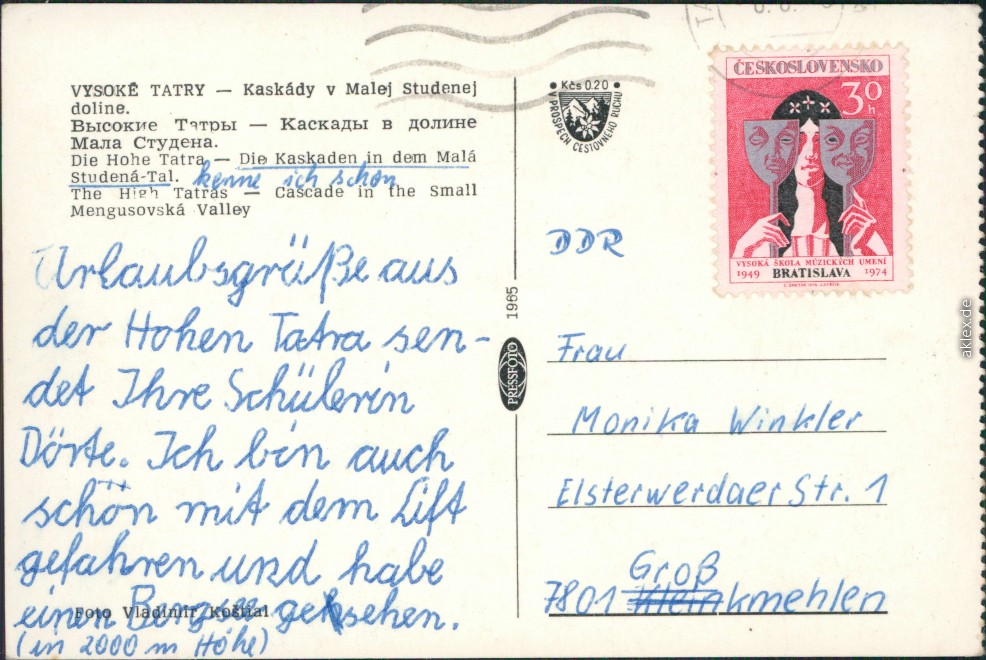 VYSOKÉ TATRY — Kaskády v Malej Studenej
doline.
Высокие Татры — Каскады в долине
Мала Студена.
Die Hohe Tatra — Die Kaskaden in dem Malá
Studená-Tal. kenne ich schon
The High Tatras — Cascade in the Small
Mengusovská Valley
Urlaubsgrüße aus
der Hohen Tatra sen-
det Ihre Schülerin
Dörte. Ich bin auch
schön mit dem Lift
gefahren und habe
einen Bergsee gesehen.
(in 2000 m Höhe)
Foto Vladimír Koštial
1965
PRESSFOTO
Kčs 0.20
V PROSPECH CESTOVNÉHO RUCHU
ČESKOSLOVENSKO
30 h
VYSOKÁ ŠKOLA MÚZICKÝCH UMENÍ
1949 BRATISLAVA 1974
DDR
Frau
Monika Winkler
Elsterwerdaer Str. 1
Groß
7801 Kleinkmehlen
aklex.de